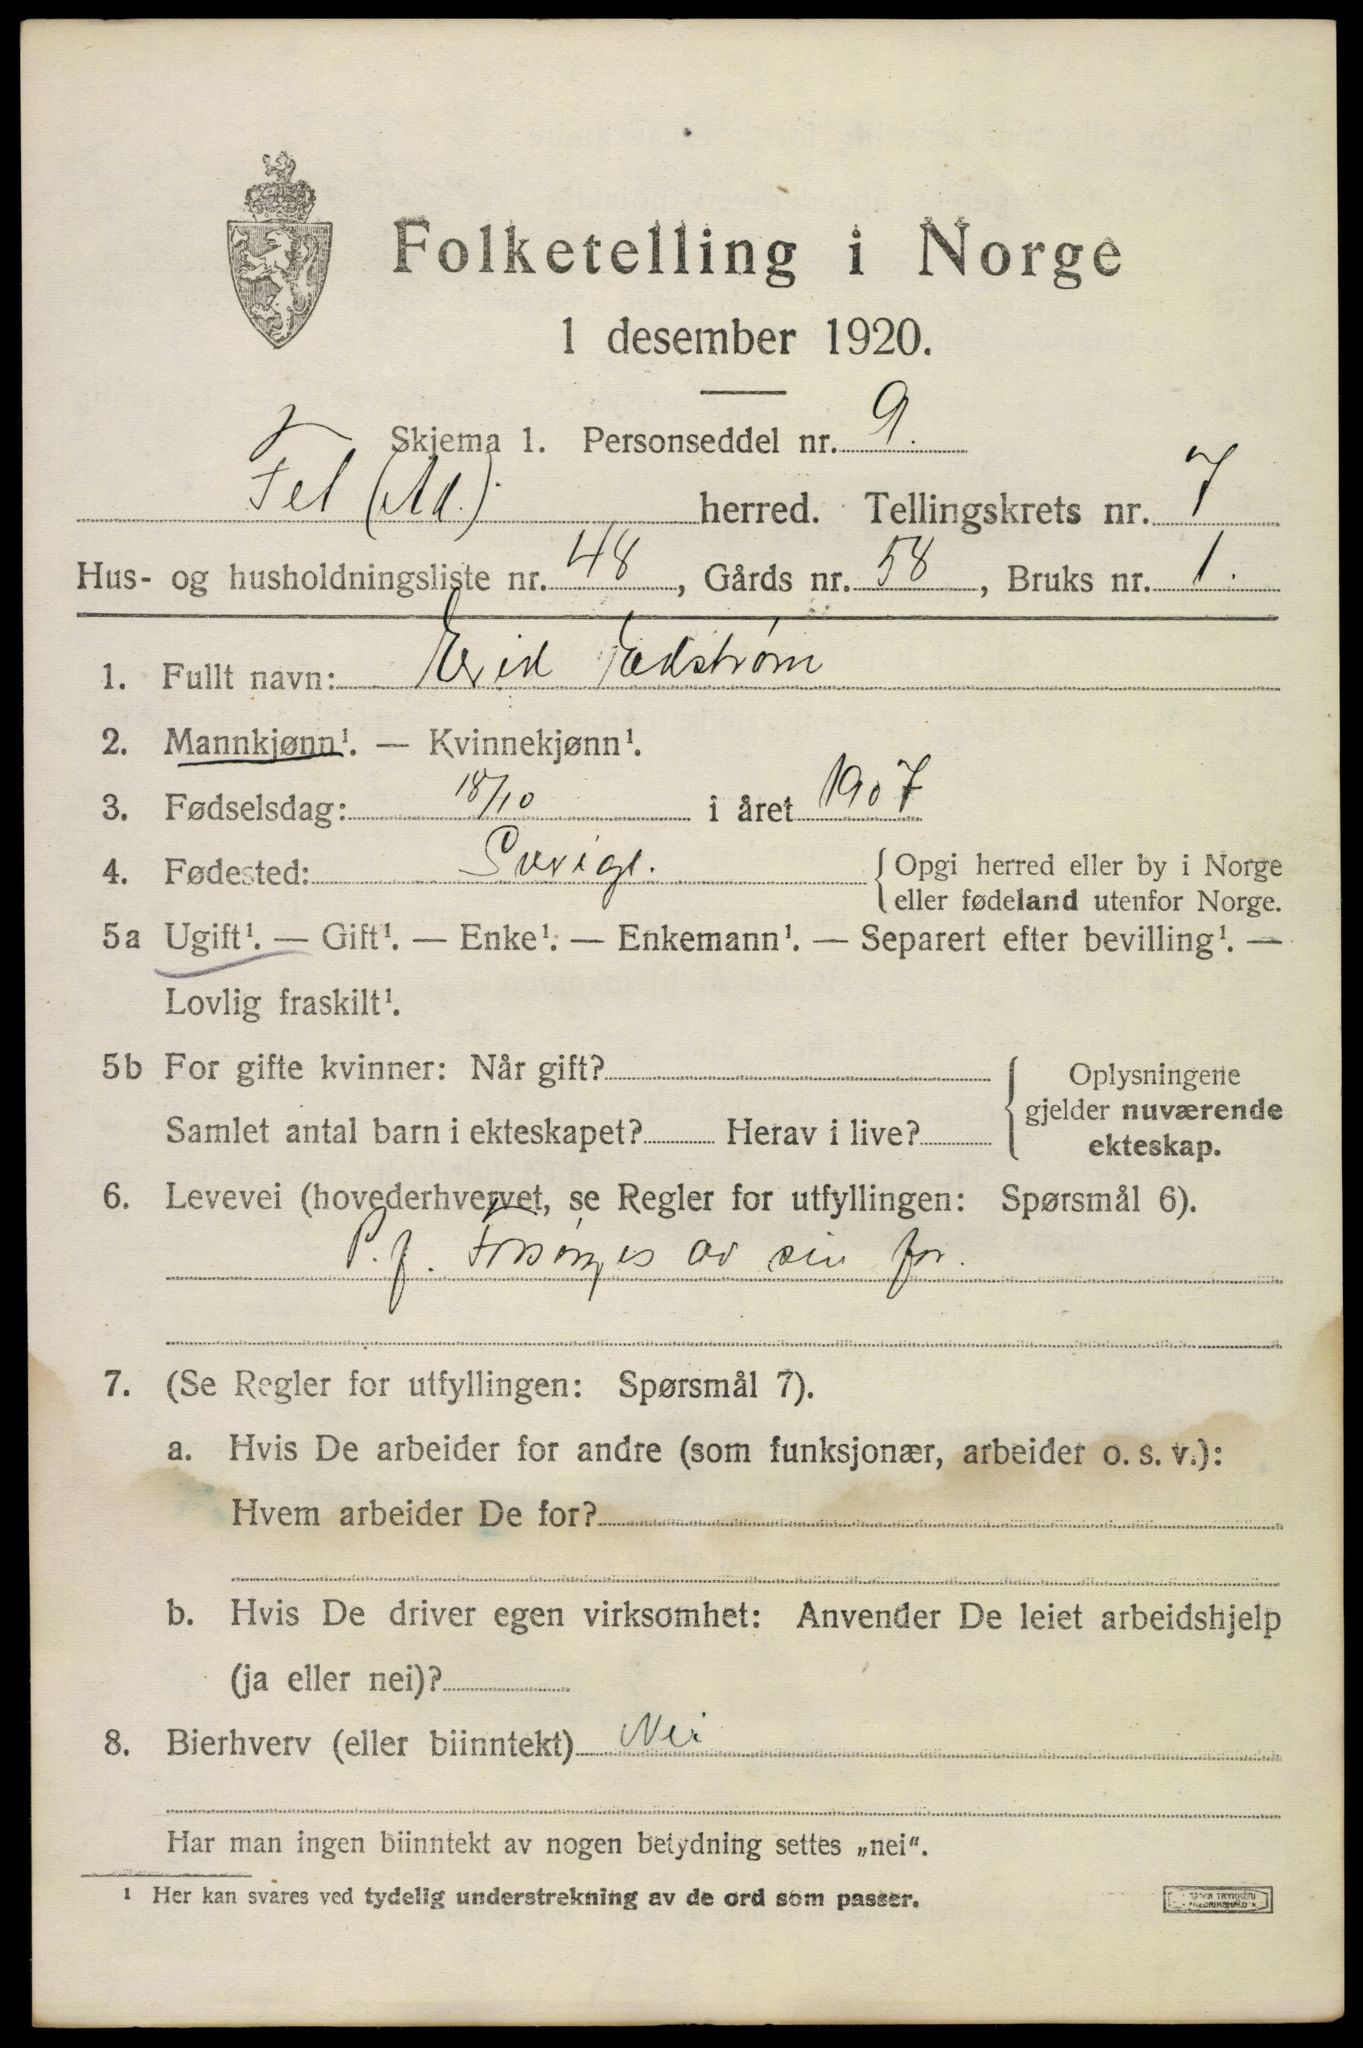 Folketelling i Norge
1 desember 1920.
Skjema 1. Personseddel nr. 9.
Fet (Ak.) herred. Tellingskrets nr. 7
Hus- og husholdningsliste nr. 48, Gårds nr. 58, Bruks nr. 1.
1. Fullt navn: Edstrøm
2. Mannkjønn¹. — Kvinnekjønn¹.
3. Fødselsdag: 18/10 i året 1907
4. Fødested: Sverige. { Opgi herred eller by i Norge
eller fødeland utenfor Norge.
5a Ugift¹. — Gift¹. — Enke¹. — Enkemann¹. — Separert efter bevilling¹. —
Lovlig fraskilt¹.
5b For gifte kvinner: Når gift?
Samlet antal barn i ekteskapet? Herav i live?
{ Oplysningene
gjelder nuværende
ekteskap.
6. Levevei (hovederhvervet, se Regler for utfyllingen: Spørsmål 6).
P. f. Forsørges av sin far.
7. (Se Regler for utfyllingen: Spørsmål 7).
a. Hvis De arbeider for andre (som funksjonær, arbeider o. s. v.):
Hvem arbeider De for?
b. Hvis De driver egen virksomhet: Anvender De leiet arbeidshjelp
(ja eller nei)?
8. Bierhverv (eller biinntekt) Nei
Har man ingen biinntekt av nogen betydning settes „nei“.
¹ Her kan svares ved tydelig understrekning av de ord som passer.